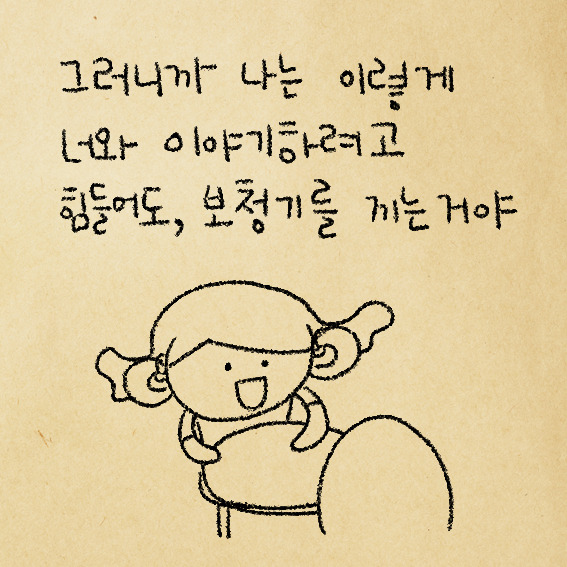 그러니까 나는 이렇게
너와 이야기하려고
힘들어도, 보청기를 끼는거야